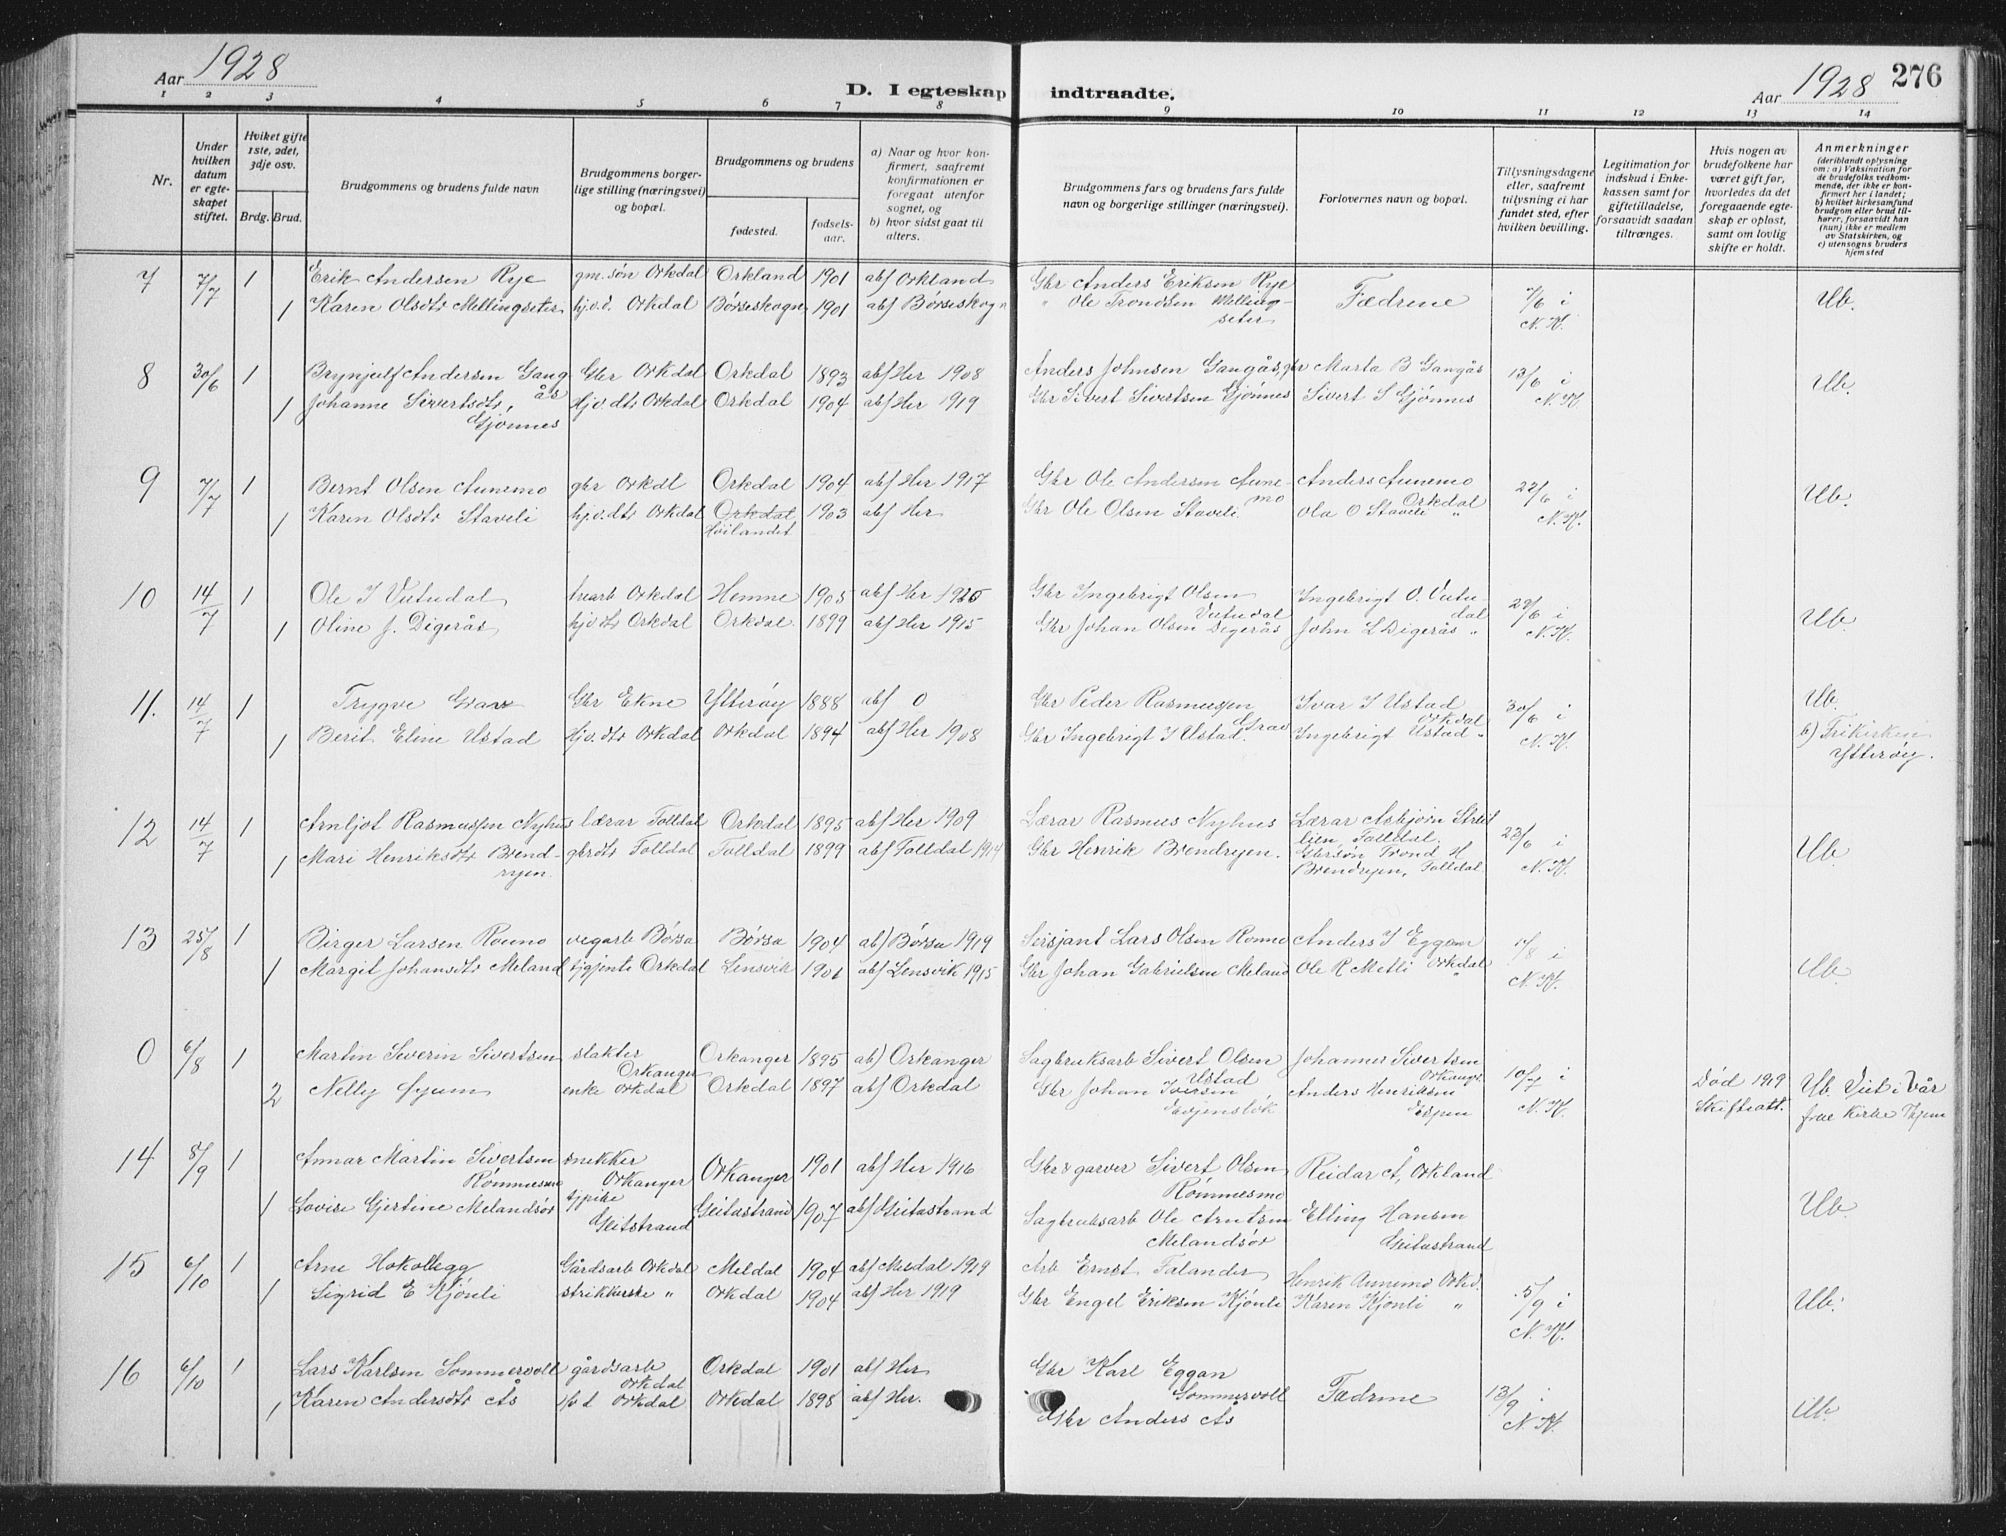 Aar 1928
D. I egteskap indtraadte.
Aar 1928 276
1 2 3 4 5 6 7 8 9 10 11 12 13 14
Nr.
Under hvilken datum er egteskapet stiftet.
Hviket gifte 1ste, 2det, 3dje osv.
Brdg. Brud.
Brudgommens og brudens fulde navn
Brudgommens borgerlige stilling (næringsvei) og bopæl.
Brudgommens og brudens
fødested.
fødselsaar.
a) Naar og hvor konfirmert, saafremt konfirmationen er foregaat utenfor sognet, og
b) hvor sidst gaat til alters.
Brudgommens fars og brudens fars fulde navn og borgerlige stillinger (næringsvei).
Forlovernes navn og bopæl.
Tillysningsdagene eller, saafremt tillysning ei har fundet sted, efter hvilken bevilling.
Legitimation for indskud i Enkekassen samt for giftetilladelse, forsaavidt saadan tiltrænges.
Hvis nogen av brudefolkene har været gift før, hvorledes da det foregaaende egteskap er opløst, samt om lovlig skifte er holdt.
Anmerkninger
(deriblandt oplysning om: a) Vaksination for de brudefolks vedkommende, der ikke er konfirmert her i landet; b) hvilket kirkesamfund brudgom eller brud tilhører, forsaavidt han (hun) ikke er medlem av Statskirken, og c) utensogns bruders hjemsted
7 7/7 1 Erik Andersen Rye gm. søn Orkdal Orkland 1901 ab) Orkland Gbr Anders Eriksen Rye Fædrene 7/6 i N.K. Ub.
1 Karen Olsdtr Mellingseter hj.v.d. Orkdal Børseskogn 1901 ab) Børseskogn " Ole Trondsen Mellingseter
8 30/6 1 Brynjulf Andersen Gangås Gbr Orkdal Orkdal 1893 ab) Her 1908 Anders Johnsen Gangås, gbr Marta B Gangås 13/6 i N.K. Ub.
1 Johanne Sivertsdtr, Gjønnes Hjv.dtr Orkdal Orkdal 1904 ab) Her 1919 Gbr Sivert Sivertsen Gjønnes Sivert S Gjønnes
9 7/7 1 Bernt Olsen Aunemo gbr Orkdl Orkdal 1904 ab) Her 1917 Gbr Ole Andersen Aunemo Anders Aunemo Orkdal 22/6 i N.K. Ub.
1 Karen Olsdtr Staveli hjv.dtr Orkdal Orkdal Høilandet 1903 ab) Her Gbr Ole Olsen Staveli Ola O Staveli "
10 14/7 1 Ole I Vutudal Orkdal Hemne 1905 ab) Her 1920 Gbr Ingebrigt Olsen Vutudal Ingebrigt O. Vutudal 29/6 i N.K. Ub.
1 Oline J. Digerås hjv.dtr Orkdal Orkdal 1899 ab) Her 1915 Gbr Johan Olsen Digerås John L Digerås "
11. 14/7 1 Trygve Grav Gbr Ekne Ytterøy 1888 ab) 0 Gbr Peder Rasmussen Ivar I Ustad Orkdal 30/6 i N.K. Ub.
1 Berit Eline Ustad Hjv.dtr Orkdal Orkdal 1894 ab) Her 1908 Gbr Ingebrigt I Ustad Ingebrigt Ustad " b) Frikirken Ytterøy.
12 14/7 1 Arnljot Rasmussen Nyhus Lærar Folldal Orkdal 1895 ab) Her 1909 Lærar Rasmus Nyhus Lærar Asbjørn Streitlien Folldal. 23/6 i N.K. Ub.
1 Mari Henriksdtr Brendryen. gbrdtr Folldal Folldal 1899 ab) Folldal 1914 Gbr Henrik Brendryen. Gbrsøn Trond H Brendryen, Folldal
13 25/8 1 Birger Larsen Ronno vegarb Børsa Børsa 1904 ab) Børsa 1919 Sersjant Lars Olsen Ronno Anders I Eggan Orkdal i N.K. Ub.
1 Margit Johansdtr Meland tjgjente Orkdal Lensvik 1901 ab) Lensvik 1915 Gbr Johan Gabrielsen Meland Ole R Metli "
0 6/8 1 Martin Severin Sivertsen slakter Orkanger Orkanger 1895 ab) Orkanger Sagbruksarb Sivert Olsen Ustad Johannes Sivertsen Orkanger 10/7 i N.K.
2 Nelly Øyum enke Orkdal Orkdal 1897 ab) Orkdal Gbr Johan Iversen Anders Henriksen Død 1919 Skifteatt. Ub. Viet i Vår frue Kirke
14 8/9 1 Annar Martin Sivertsen Rømmesmo snekker Orkanger Orkanger 1901 ab) Her 1916 Gbr & garver Sivert Olsen Rømmesmo Reidar Å, Orkland Ub.
1 Lovise Gjertine Melandsør Geitstrand Geitastrand 1907 ab) Geitastrand Sagbruksarb Ole Arntsen Melandsør Elling Hansen Geitastrand
15 6/10 1 Arne Hokollegg Gårdsarb Orkdal Meldal 1904 ab) Meldal 1919 Arb Ernst Talander Henrik Aunemo Orkd. 5/9 i N.K. Ub.
1 Sigrid E Kjønli strikkerske " Orkdal 1904 ab) Her 1919 Gbr Engel Eriksen Kjønli Karen Kjønli "
16 6/10 1 Lars Karlsen Sommervoll gårdsarb Orkdal Orkdal 1901 ab) Her Gbr Karl Eggan Sommervoll Fædrene 13/9 i N.K. Ub.
1 Karen Andersdtr Ås Orkdal Orkdal 1898 ab) Her. Gbr Anders Ås